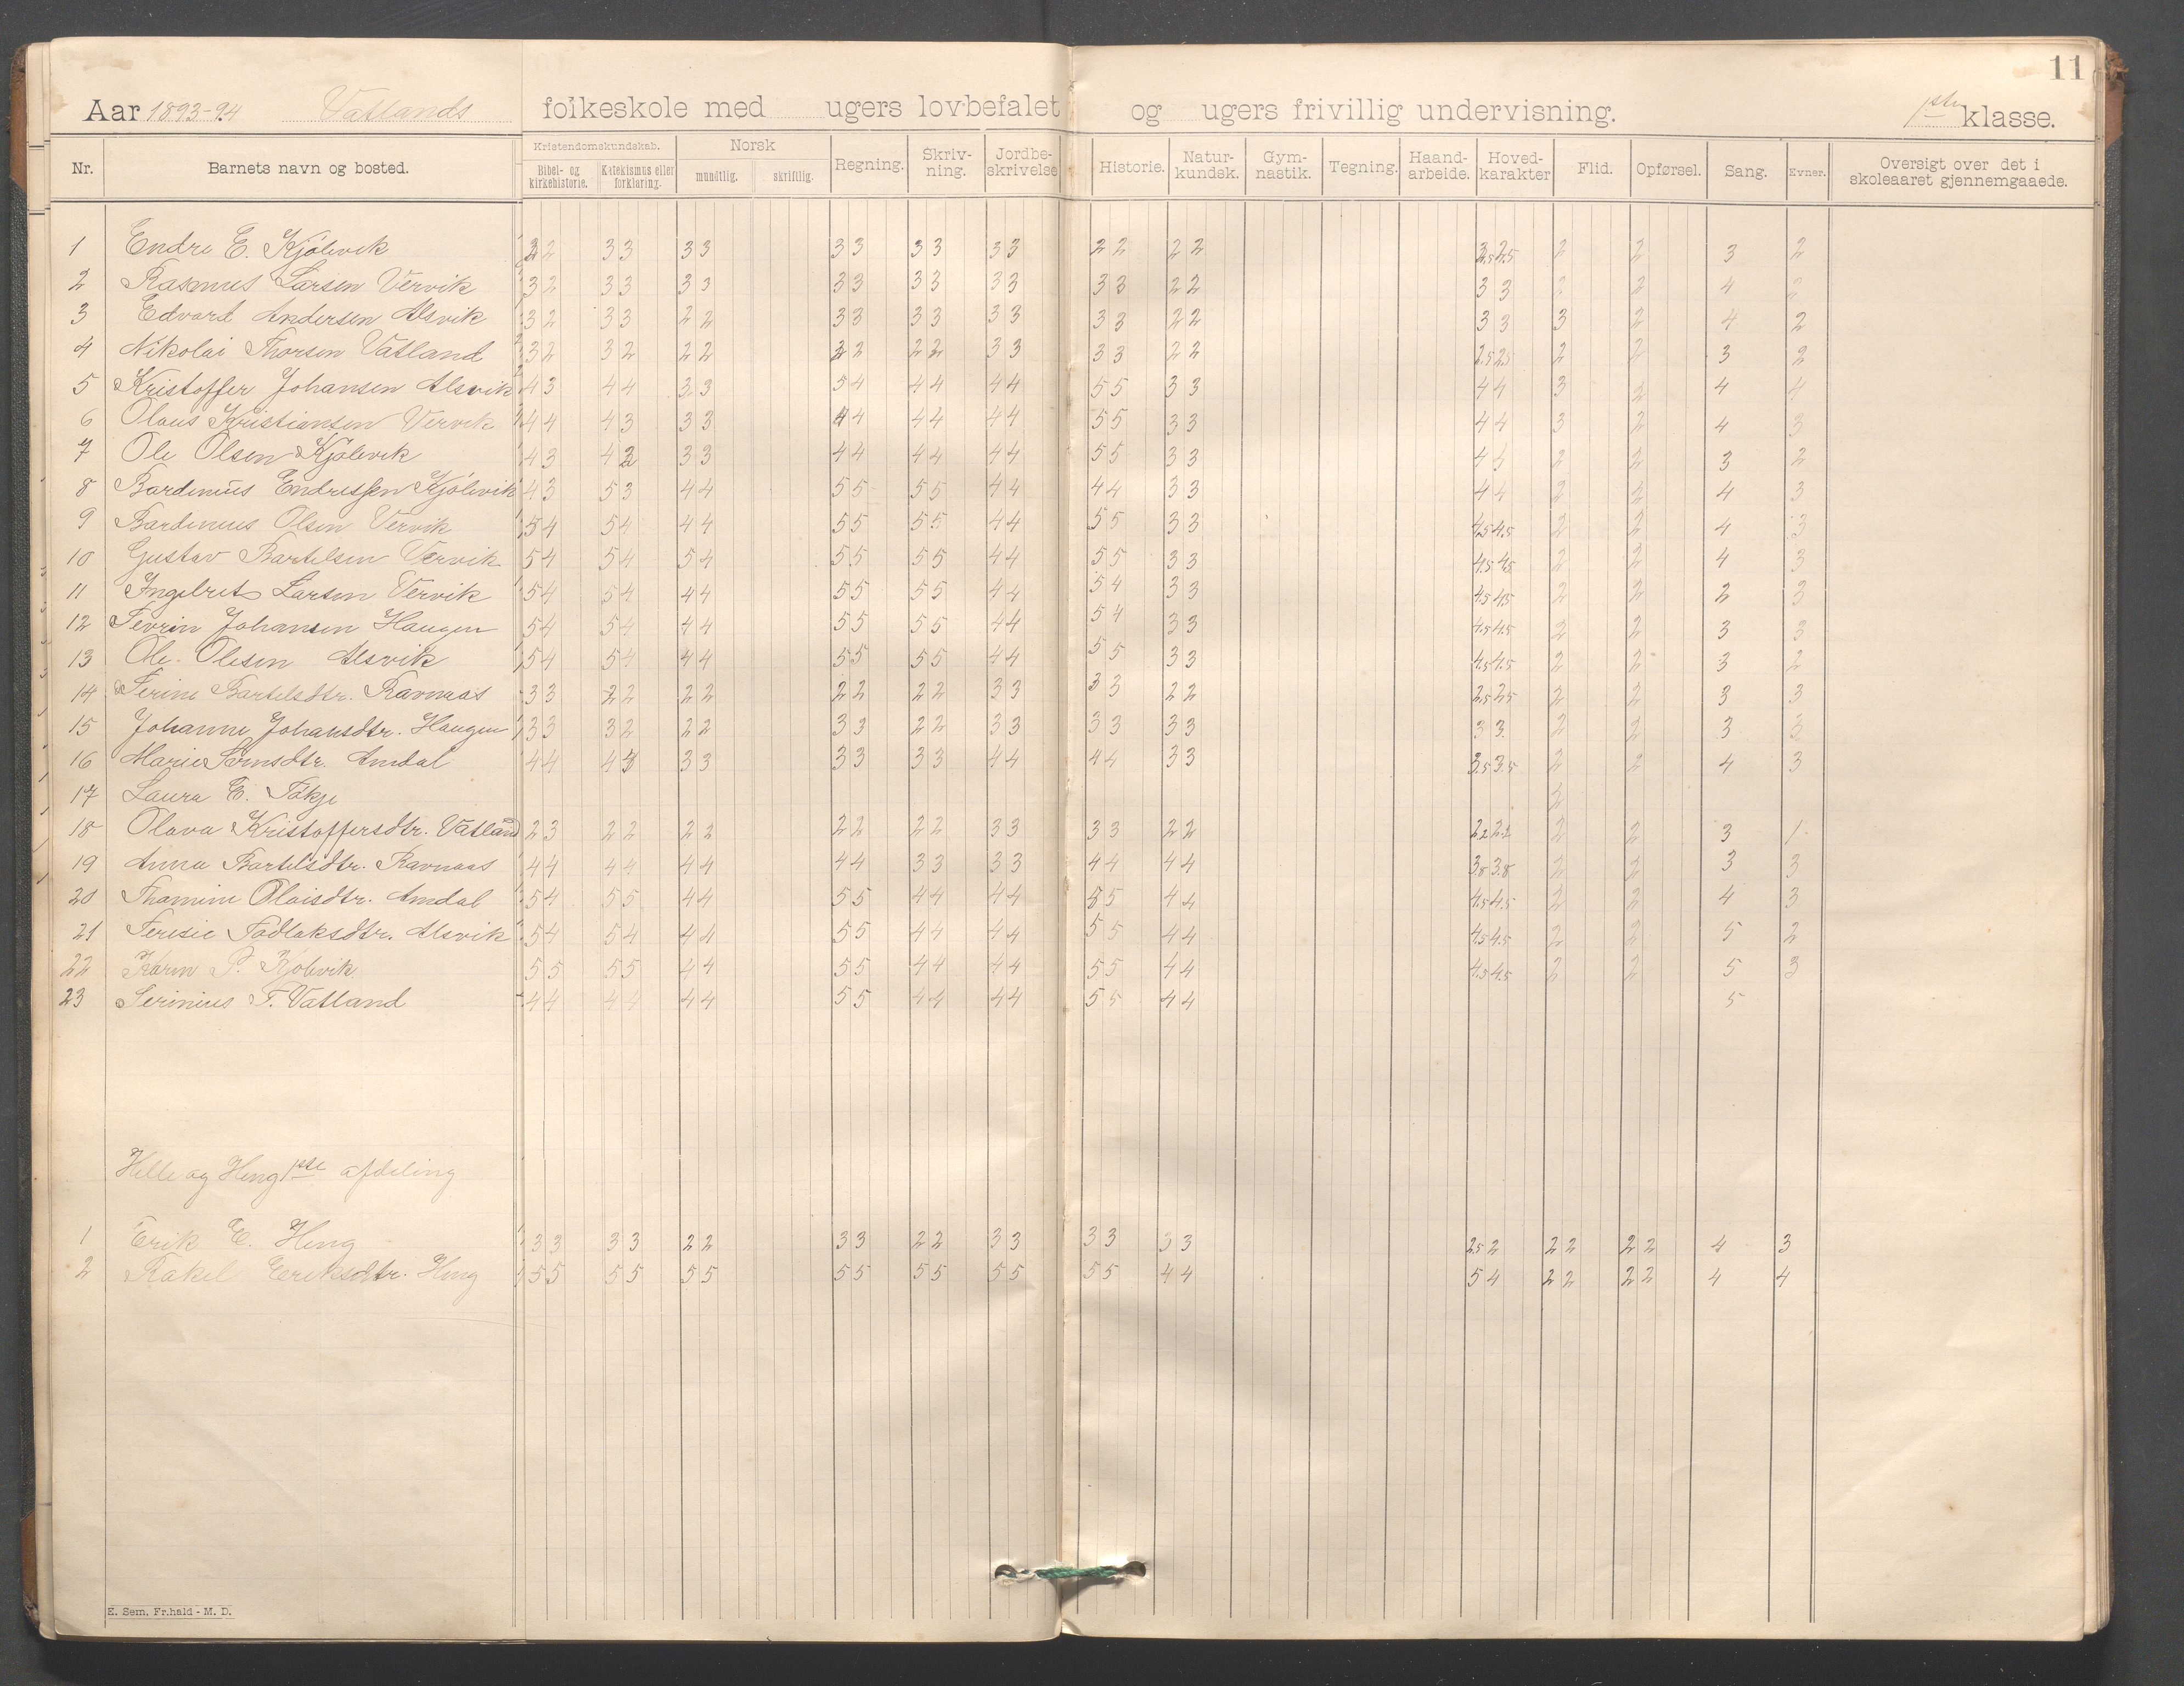 11
Aar 1893-94 Vatlands folkeskole med ugers lovbefalet og ugers frivillig undervisning. 1ste klasse.
Nr. Barnets navn og bosted. Kristendomskundskab. Bibel- og kirkehistorie. Katekismus eller forklaring. Norsk mundtlig. skriftlig. Regning. Skriv-ning. Jordbe-skrivelse Historie. Natur-kundsk. Gym-nastik. Tegning. Haand-arbeide. Hoved-karakter Flid. Opførsel. Sang. Evner. Oversigt over det i skoleaaret gjennemgaaede.
1 Endre E. Kjölevik 22 33 33 33 33 33 22 22 2.5 2.5 2 2 3 2
2 Rasmus Larsen Vervik 32 33 33 33 33 33 33 22 3 3 2 2 4 2
3 Edvard Andersen Alsvik 32 33 22 33 33 33 33 22 3 3 3 2 4 2
4 Nikolai Thorsen Vatland 32 32 22 22 22 33 33 22 2.5 2.5 2 2 3 2
5 Kristoffer Johansen Alsvik 43 44 33 54 44 44 55 33 4 4 3 2 4 4
6 Olaus Kristiansen Vervik 44 43 33 44 44 44 55 33 4 4 3 2 4 3
7 Ole Olsen Kjölevik 43 42 33 44 44 44 55 33 4 4 2 2 3 2
8 Bardinius Endressen Kjölevik 43 53 44 55 55 44 44 33 4 4 2 2 4 3
9 Bardinius Olsen Vervik 54 54 44 55 55 44 55 33 4.5 4.5 2 2 4 3
10 Gustav Bartelsen Vervik 54 54 54 55 55 44 55 33 4.5 4.5 2 2 4 3
11 Ingebret Larsen Vervik 54 54 44 55 55 44 54 33 4.5 4.5 2 2 2 3
12 Sevrin Johansen Haugen 54 54 44 55 55 44 54 33 4.5 4.5 2 2 3 3
13 Ole Olesen Alsvik 54 54 44 55 55 44 55 33 4.5 4.5 2 2 3 2
14 Serine Bartelsdtr. Ravnaas 33 22 22 22 22 33 33 22 2.5 2.5 2 2 3 3
15 Johanne Johansdtr. Haugen 33 32 22 33 22 33 33 33 3 3 2 2 3 3
16 Marie Tornsdtr. Amdal 44 43 33 33 33 44 44 33 3.5 3.5 2 2 4 3
17 Laura E. 2
18 Olava Kristoffersdtr. Vatland 23 22 22 22 22 33 33 22 2.2 2.2 2 2 3 1
19 Anna Bartelsdtr. Ravnaas 44 44 44 44 33 33 44 44 3.8 3.8 2 2 3 3
20 Thomine Olaisdtr. Amdal 54 55 44 55 44 44 55 44 4.5 4.5 2 2 4 3
21 Teresie Tadlaksdtr. Alsvik 54 54 44 55 44 44 55 44 4.5 4.5 2 2 5 2
22 Karen P. Kjolevik 55 55 44 55 44 44 55 44 4.5 4.5 2 2 5 3
23 Serinius T. Vatland 44 44 44 55 44 44 55 44 5
Helle og Heng 1ste afdeling
1 Erik E. Heng 33 33 22 33 22 33 33 33 2.5 2 22 22 4 3
2 Rakel Eriksdtr. Heng 55 55 55 55 55 55 55 44 5 4 22 22 4 4
E. Sem. Fr.hald - M. D.